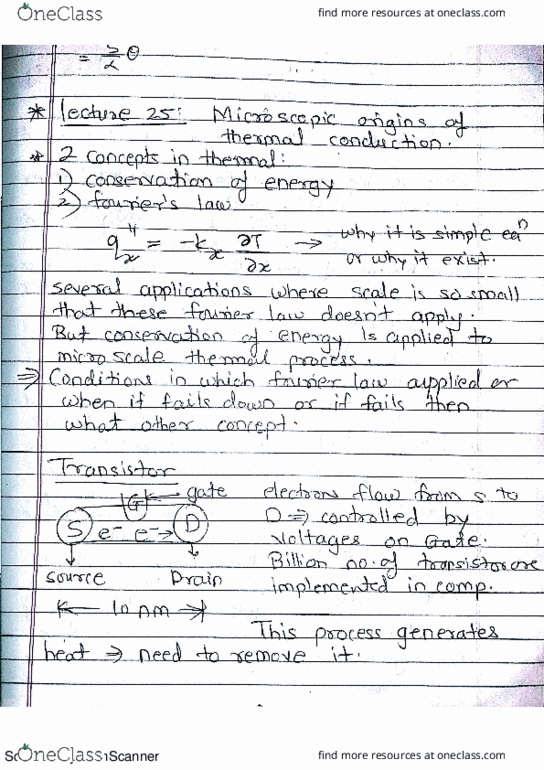 OneClass
find more resources at oneclass.com
= 5/2 θ
* lecture 25: Microscopic origins of
thermal conduction.
* 2 concepts in thermal:
1) conservation of energy
2) fourier's law
q"x = -kx ∂T/∂x → why it is simple eqn
or why it exist.
several applications where scale is so small
that these fourier law doesn't apply.
But conservation of energy is applied to
micro scale thermal process.
⇒ Conditions in which fourier law applied or
when it fails down or if fails then
what other concept.
Transistor
G ← gate electrons flow from s to
S e- e- → D D ⇒ controlled by
voltages on Gate.
Billion no. of transistor are
source Drain implemented in comp.
← 10 nm →
This process generates
heat ⇒ need to remove it.
OneClass
Scanner
find more resources at oneclass.com